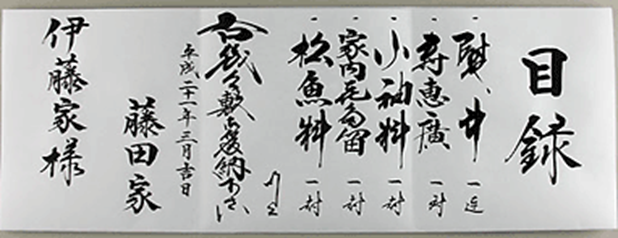 目録
一 熨斗 一連
一 寿恵廣 一対
一 小袖料 一封
一 家内喜多留 一封
一 松魚料 一封
右幾久敷御受納下さい
以上
平成二十一年三月吉日
藤田家
伊藤家様